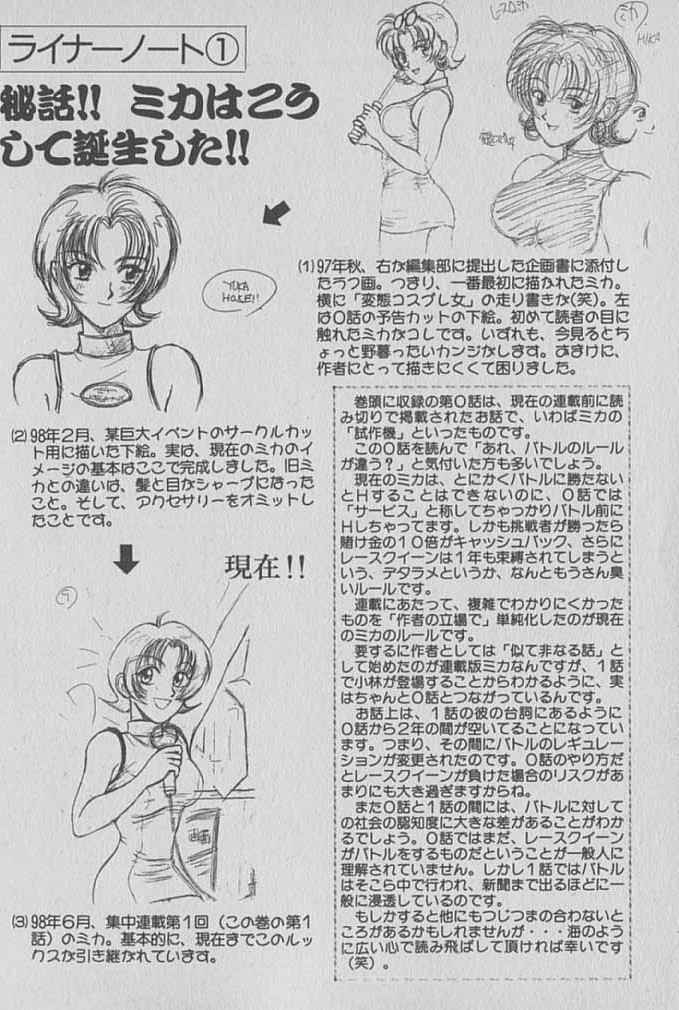 ライナーノート①
秘話!! ミカはこう
して誕生した!!
ミカ
MIKA
(1)97年秋、右が編集部に提出した企画書に添付し
たラフ画。つまり、一番最初に描かれたミカ。
横に「変態コスプレ女」の走り書きが(笑)。左
は0話の予告カットの下絵。初めて読者の目に
触れたミカがコレです。いずれも、今見るとち
ょっと野暮ったいカンジがします。おまけに、
作者にとって描きにくくて困りました。
(2)98年2月、某巨大イベントのサークルカッ
ト用に描いた下絵。実は、現在のミカのイ
メージの基本はここで完成しました。旧ミ
カとの違いは、髪と目がシャープになった
こと。そして、アクセサリーをオミットし
たことです。
現在!!
(3)98年6月、集中連載第1回(この巻の第1
話)のミカ。基本的に、現在までこのルッ
クスが引き継がれています。
巻頭に収録の第0話は、現在の連載前に読
み切りで掲載されたお話で、いわばミカの
「試作機」といったものです。
この0話を読んで「あれ、バトルのルール
が違う?」と気付いた方も多いでしょう。
現在のミカは、とにかくバトルに勝たない
とHすることはできないのに、0話では
「サービス」と称してちゃっかりバトル前に
Hしちゃってます。しかも挑戦者が勝ったら
賭け金の10倍がキャッシュバック、さらに
レースクイーンは1年も束縛されてしまうと
いう、デタラメというか、なんともうさん臭
いルールです。
連載にあたって、複雑でわかりにくかった
ものを「作者の立場で」単純化したのが現在
のミカのルールです。
要するに作者としては「似て非なる話」と
して始めたのが連載版ミカなんですが、1話
で小林が登場することからわかるように、実
はちゃんと0話とつながっているんです。
お話上は、1話の彼の台詞にあるように
0話から2年の間が空いてることになってい
ます。つまり、その間にバトルのレギュレー
ションが変更されたのです。0話のやり方だ
とレースクイーンが負けた場合のリスクがあ
まりにも大き過ぎますからね。
また0話と1話の間には、バトルに対して
の社会の認知度に大きな差があることがわか
るでしょう。0話ではまだ、レースクイーン
がバトルをするものだということが一般人に
理解されていません。しかし1話ではバトル
はそこら中で行われ、新聞まで出るほどに一
般に浸透しているのです。
もしかすると他にもつじつまの合わないと
ころがあるかもしれませんが・・・海のよう
に広い心で読み飛ばして頂ければ幸いです
(笑)。